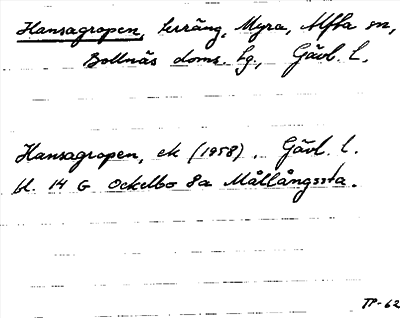 Hansagropen, terräng, Myra, Alfta sn,
Bollnäs doms. hg., Gävl. l.
Hansagropen, ek (1958). Gävl. l.
bl. 14 G Ockelbo 8a Mållångssta.
TP-62